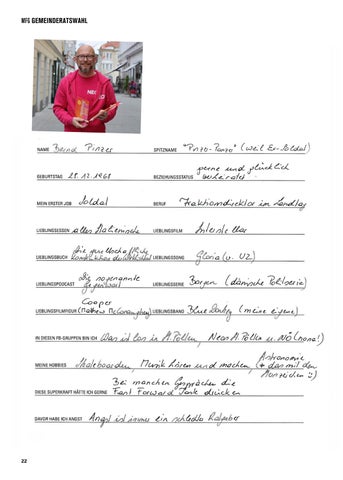 MFG GEMEINDERATSWAHL
NEO
NAME Bernd Pinzer SPITZNAME "Pinzo-Panzo" (weil Ex-Soldat)
GEBURTSTAG 28.12.1968 BEZIEHUNGSSTATUS gerne und glücklich verheiratet
MEIN ERSTER JOB Soldat BERUF Fraktionsdirektor im Landtag
LIEBLINGSESSEN alles Italienische LIEBLINGSFILM Interstellar
LIEBLINGSBUCH Die gesellschaftliche Konstruktion der Wirklichkeit LIEBLINGSSONG Gloria (v. U2)
LIEBLINGSPODCAST Die sogenannte Gegenwart LIEBLINGSSERIE Borgen (dänische Politserie)
LIEBLINGSFILMFIGUR Cooper (Mathew McConaughey) LIEBLINGSBAND (meine eigene)
IN DIESEN FB-GRUPPEN BIN ICH Was ist los in St. Pölten, Neos St. Pölten u. NÖ (nona!)
MEINE HOBBIES Skateboarden, Musik hören und machen, Astronomie (+ das mit den Horizonten :))
DIESE SUPERKRAFT HÄTTE ICH GERNE Bei manchen Gesprächen die Fast Forward Taste drücken
DAVOR HABE ICH ANGST Angst ist immer ein schlechter Ratgeber
22